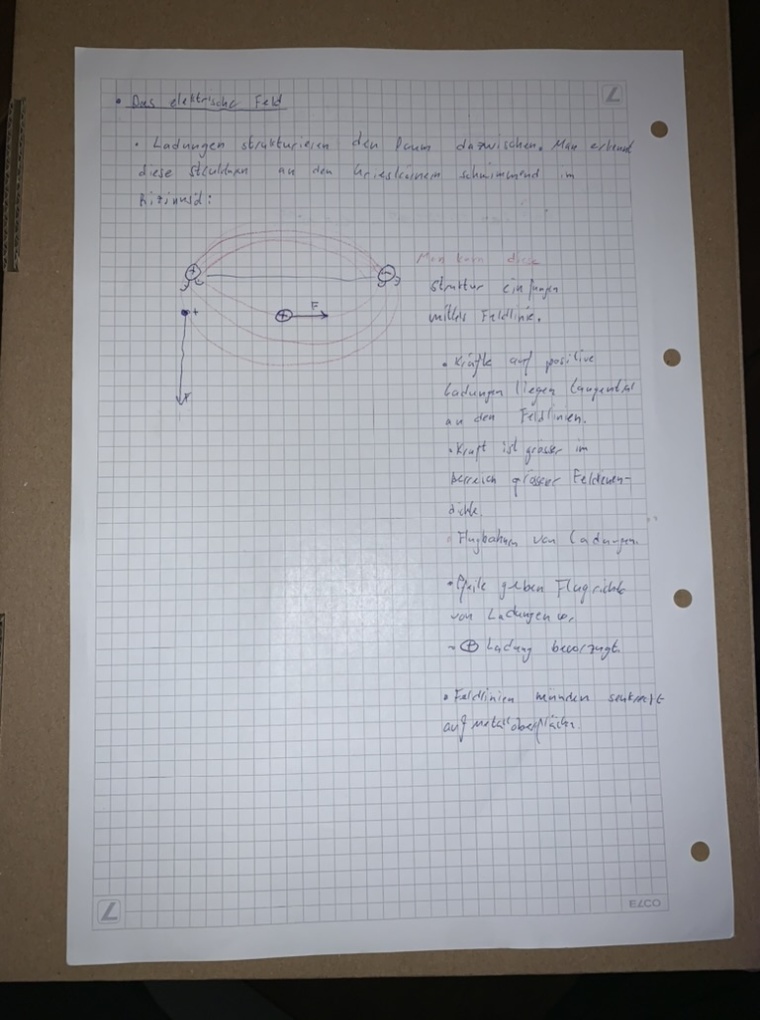 • Das elektrische Feld
• Ladungen strukturieren den Raum dazwischen. Man erkennt
diese Strukturen an den Grieskörnern schwimmend im
Rizinusöl:
Man kann diese
Struktur einfangen
mittels Feldlinie.
+
−
F
+
+
• Kräfte auf positive
Ladungen liegen tangential
an den Feldlinien.
• Kraft ist grösser im
Bereich grösser Feldlinien-
dichte.
• Flugbahnen von Ladungen.
• Pfeile geben Flugrichtg
von Ladungen
→ ⊕ Ladung bevorzugt.
• Feldlinien münden senkrecht
auf Metalloberfläche.
ELCO